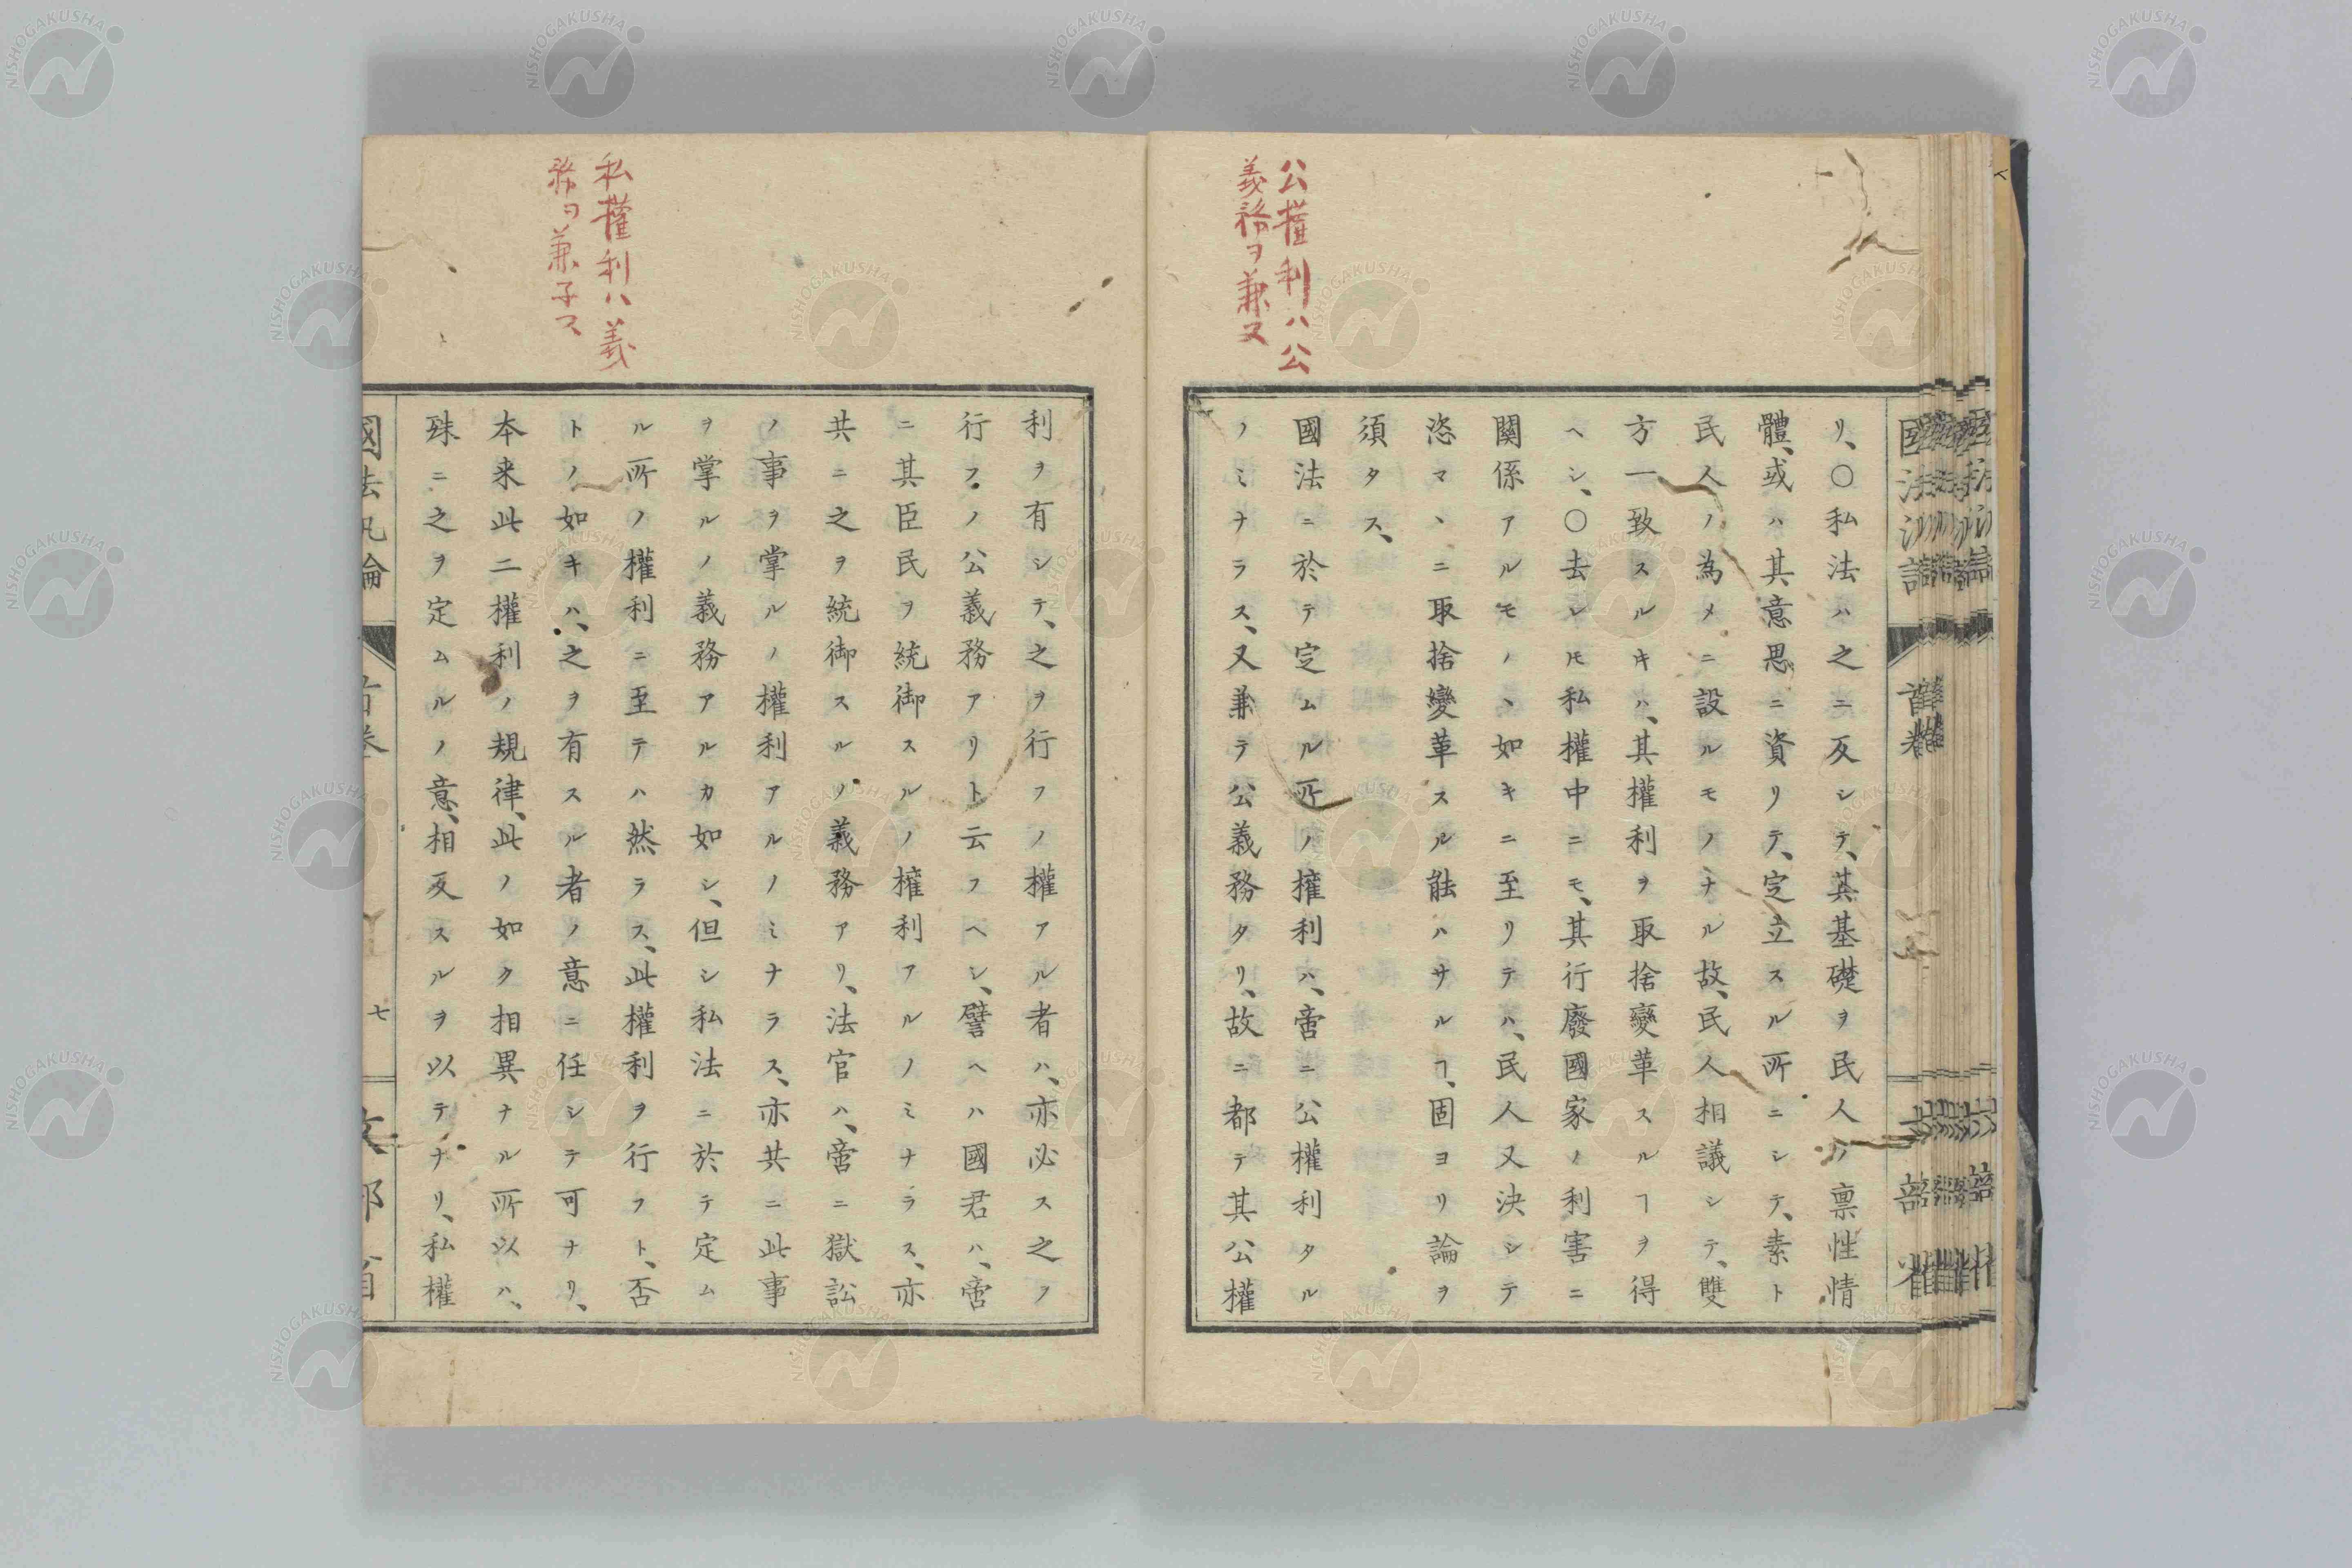 公權利ハ公
義務ヲ兼又
リ、〇私法ハ之ニ反シテ、其基礎ヲ民人ノ稟性情
體、或ハ其意思ニ資リテ、定立スル所ニシテ、素ト
民人ノ為メニ設ルモノナル故、民人相議シテ、雙
方一致スルキハ、其權利ヲ取捨變革スルヿヲ得
ヘシ、〇去レ𪜈私權中ニモ、其行廢國家ノ利害ニ
關係アルモノヽ如キニ至リテハ、民人又決シテ
恣マヽニ取捨變革スル能ハサルヿ、固ヨリ論ヲ
須タス、
國法ニ於テ定ムル所ノ權利ハ、啻ニ公權利タル
ノミナラス、又兼テ公義務タリ、故ニ都テ其公權
私權利ハ義
務ヲ兼子ス
利ヲ有シテ、之ヲ行フノ權アル者ハ、亦必ス之ヲ
行フノ公義務アリト云フヘシ、譬ヘハ國君ハ、啻
ニ其臣民ヲ統御スルノ權利アルノミナラス、亦
共ニ之ヲ統御スルノ義務アリ、法官ハ、啻ニ獄訟
ノ事ヲ掌ルノ權利アルノミナラス、亦共ニ此事
ヲ掌ルノ義務アルカ如シ、但シ私法ニ於テ定ム
ル所ノ權利ニ至テハ然ラス、此權利ヲ行フト、否
トノ如キハ、之ヲ有スル者ノ意ニ任シテ可ナリ、
本来此二權利ノ規律、此ノ如ク相異ナル所以ハ、
殊ニ之ヲ定ムルノ意、相反スルヲ以テナリ、私權
國法汎論
首卷
七
文部省